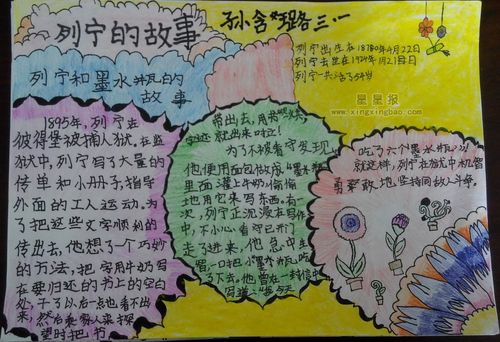 列宁的故事
孙含璐三.一
列宁出生在1870年4月22日
列宁去世在1924年1月21日
列宁一共活了54岁
星星报
www.xingxingbao.com
列宁和墨水瓶的
故事
1895年,列宁在
彼得堡被捕入狱。在监
狱中,列宁写了大量的
传单和小册子,指导
外面的工人运动。为
了把这些文字顺利的
传出去,他想了一个巧妙
的方法,把字用牛奶写
在要归还的书上的空白
处,干了以后一点也看不出
来,然后来探
望时把书
带出去,用书
字迹就出来啦!
为了不被看守发现,
他便用面包做成"墨水瓶"
里面灌上牛奶偷偷
地用它来写东西。有一
次,列宁正沉浸在写作
中,不小心看守已开门
走了进来,他急中生
智,一口把小墨水瓶吃
了下去,他曾在一封信中
写道:"今天
吃了六个墨水瓶
就这样,列宁在狱中机智
勇敢地坚持同敌人斗争。